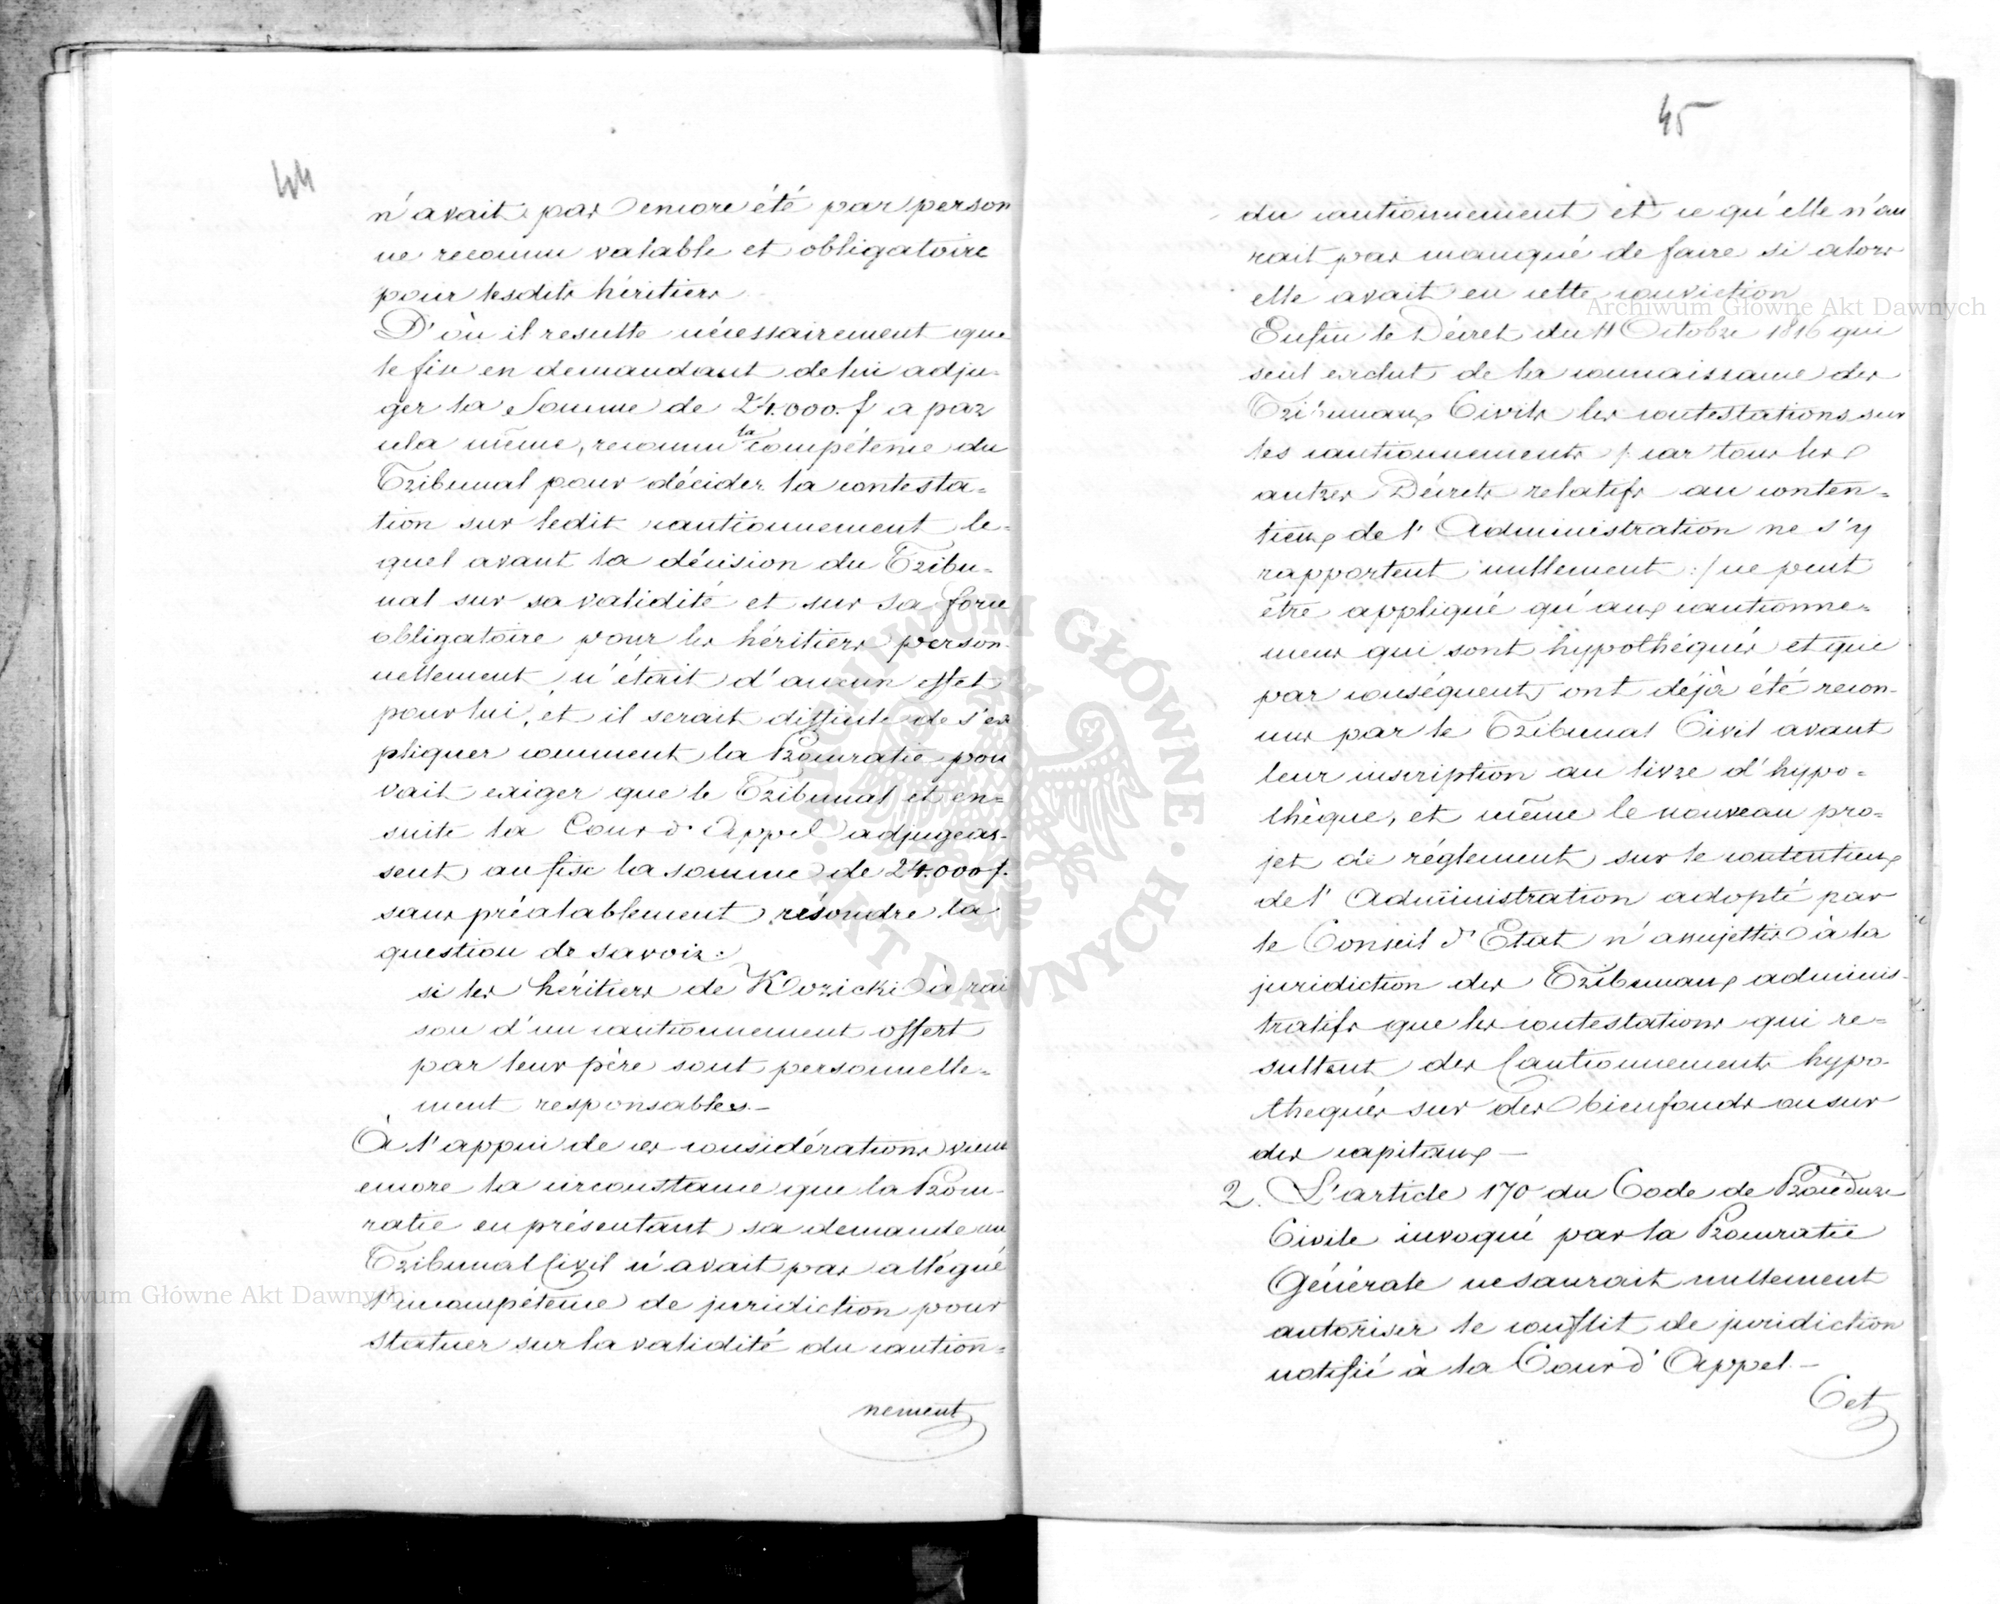 44
n'avait pas encore été par person
ne reconnu valable et obligatoire
pour lesdits héritiers
D'où il resulte nécessairement que
le fisc en demandant de lui adju-
ger la Somme de 24.000.f a par
cela même, reconnu la compétence du
Tribunal pour décider la contesta-
tion sur ledit cautionnement le-
quel avant la décision du Tribu-
nal sur sa validité et sur sa force
obligatoire pour les héritiers person-
nellement, n'était d'aucun effet
pour lui, et il serait difficile de s'ex
pliquer comment la Procuratie pou
vait exiger que le Tribunal et en-
suite la Cour d'Appel adjugeas-
sent au fisc la somme de 24.000 f.
sans préalablement résoudre la
question de savoir:
si les héritiers de Kozicki à rai
son d'un cautionnement offert
par leur père sont personnelle-
ment responsables.-
À l'appui de ces considérations vient
encore la circonstance que la Procu-
ratie en présentant sa demande au
Tribunal Civil n'avait pas allégué
l'incompétence de juridiction pour
statuer sur la validité du caution-
nement
45
du cautionnement et ce qu'elle n'au
rait pas manqué de faire si alors
elle avait eu cette conviction
Enfin le Décret du 11 Octobre 1816 qui
seul exclut de la connaissance des
Tribunaux Civils les contestations sur
les cautionnements /: car tous les
autres Décrets relatifs au conten-
tieux de l'Administration ne s'y
rapportent nullement :/ ne peut
être appliqué qu'aux cautionne-
mens qui sont hypothéqués et que
par conséquent ont déjà été recon-
nus par le Tribunal Civil avant
leur inscription au livre d'hypo-
thèque, et même le nouveau pro-
jet de réglement sur le contentieux
de l'Administration adopté par
le Conseil d'Etat n'assujettis à la
juridiction des Tribunaux adminis-
tratifs que les contestations qui re-
sultent des Cautionnements hypo-
thequés sur des bienfonds ou sur
des capitaux —
2. L'article 170 du Code de Procédure
Civile invoqué par la Procuratie
Générale ne saurait nullement
autoriser le conflit de juridiction
notifié à la Cour d'Appel.—
Cet
Archiwum Główne Akt Dawnych
Archiwum Główne Akt Dawnych
ARCHIWUM GŁÓWNE · AKT DAWNYCH ·